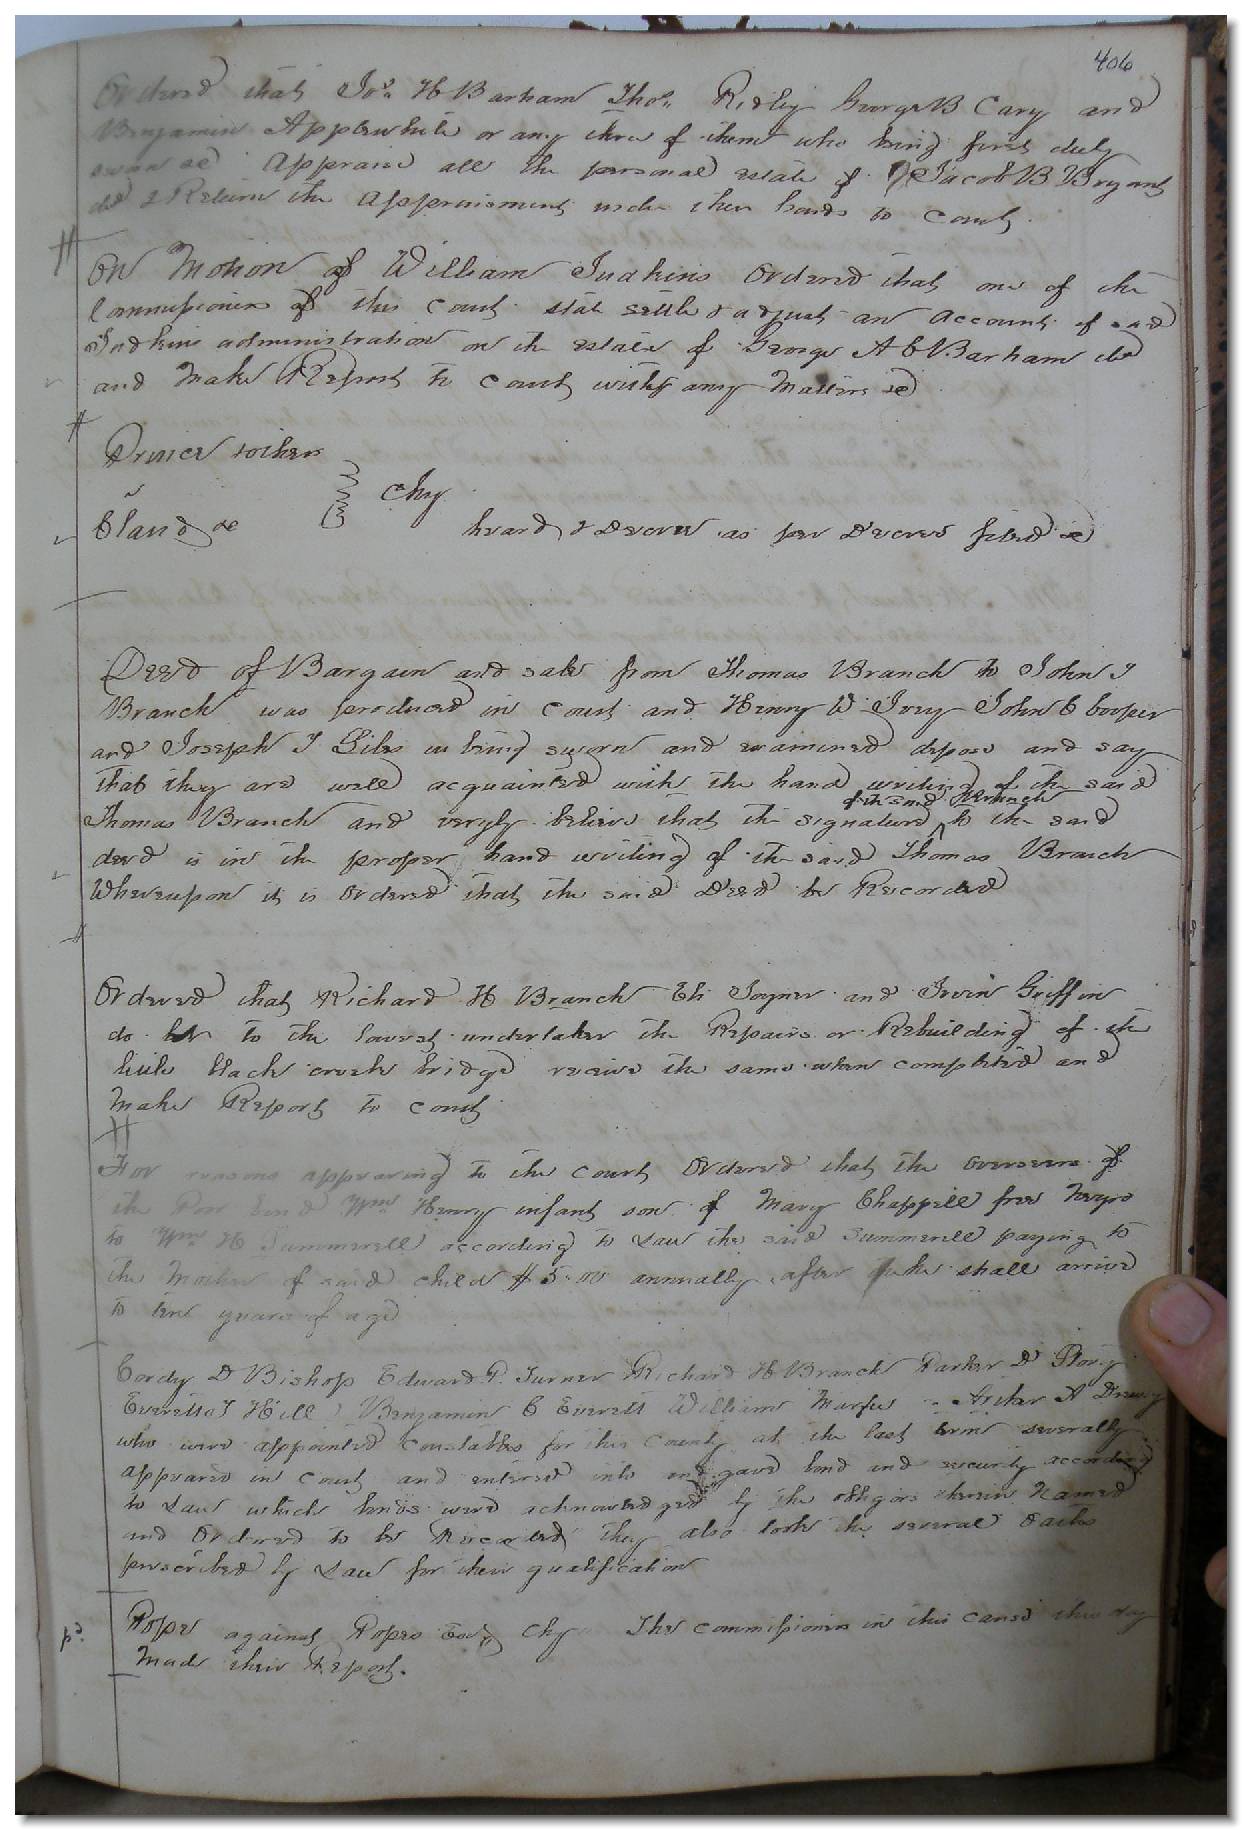 406
Ordered that Jos. H Barham Thos. Ridley George B Cary and
Benjamin Applewhite or any three of them who being first duly
sworn &c Appraise all the personal estate of Jacob B Bryant
decd & Return the Appraisement under their hands to Court
On Motion of William Judkins Ordered that one of the
Commissioners of this Court state settle & adjust an account of said
Judkins administration on the estate of George A C Barham decd
and Make Report to Court with any Matters &c
Prince & others
v
Bland &c
Chy
heard & Decree as per Decree filed &c
Deed of Bargain and sale from Thomas Branch to John J
Branch was produced in Court and Henry W Ivey John C Cooper
and Joseph J Giles being sworn and examined depose and say
that they are well acquainted with the hand writing of the said
of the said Branch
Thomas Branch and veryly believe that the signature ^ to the said
deed is in the proper hand writing of the said Thomas Branch
Whereupon it is Ordered that the said Deed be Recorded
Ordered that Richard H Branch Eli Joyner and Irvin Griffin
do let to the lowest undertaker the Repairs or Rebuilding of the
little black creek bridge receive the same when completed and
Make Report to Court
For reasons appearing to the Court Ordered that the overseers of
the Poor bind Wm Henry infant son of Mary Chappell free Negro
to Wm H Summerell according to Law the said Summerell paying to
the Mother of said child $5.00 annually after he shall arrive
to ten years of age
Cordy D Bishop Edward P. Turner Richard H Branch Parker D
Everett J Hill Benjamin C Everett William Murfee Arthur A Drewry
who were appointed Constables for this County at the last term severally
appeared in Court and entered into and gave bond and security according
to Law which bonds were acknowledged by the obligors therein Named
and Ordered to be Recorded they also took the several Oaths
prescribed by Law for their qualification
pd.
Pope against Popes Exor Chy The Commissioners in this cause this day
Made their Report.